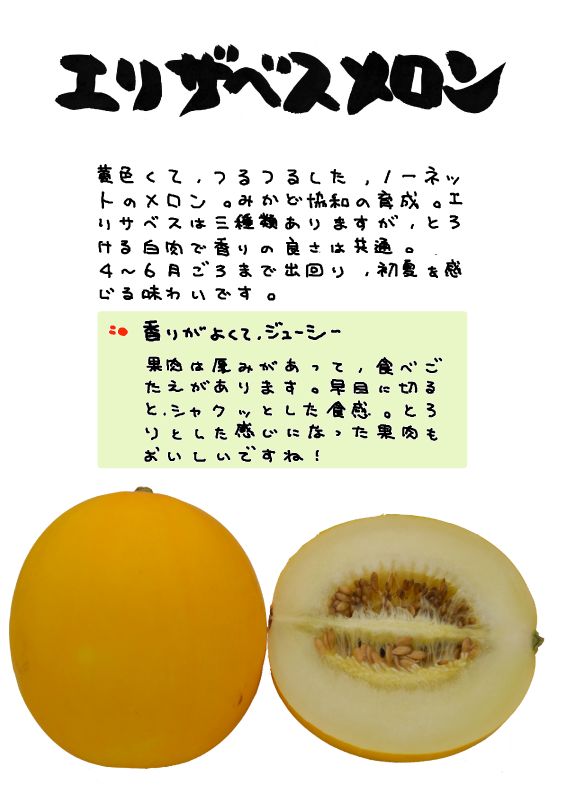 エリザベスメロン
黄色くて,つるつるした,ノーネッ
トのメロン。みかど協和の育成。エ
リサベスは三種類ありますが,とろ
ける白肉で香りの良さは共通。
4〜6月ごろまで出回り,初夏を感
じる味わいです。
香りがよくて,ジューシー
果肉は厚みがあって,食べご
たえがあります。早目に切る
と,シャクッとした食感。とろ
りとした感じになった果肉も
おいしいですね!